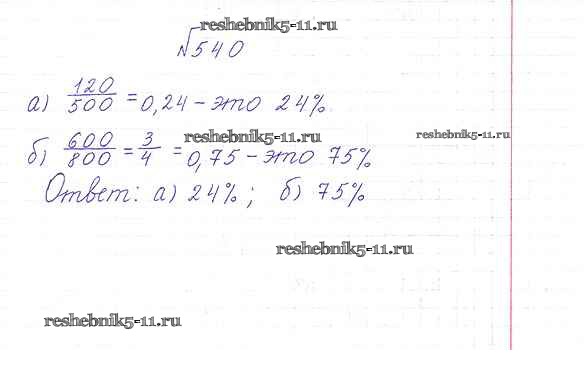 reshebnik5-11.ru
№540
а) 120/500 = 0,24 - это 24%
reshebnik5-11.ru
reshebnik5-11.ru
б) 600/800 = 3/4 = 0,75 - это 75%
Ответ: а) 24%; б) 75%
reshebnik5-11.ru
reshebnik5-11.ru